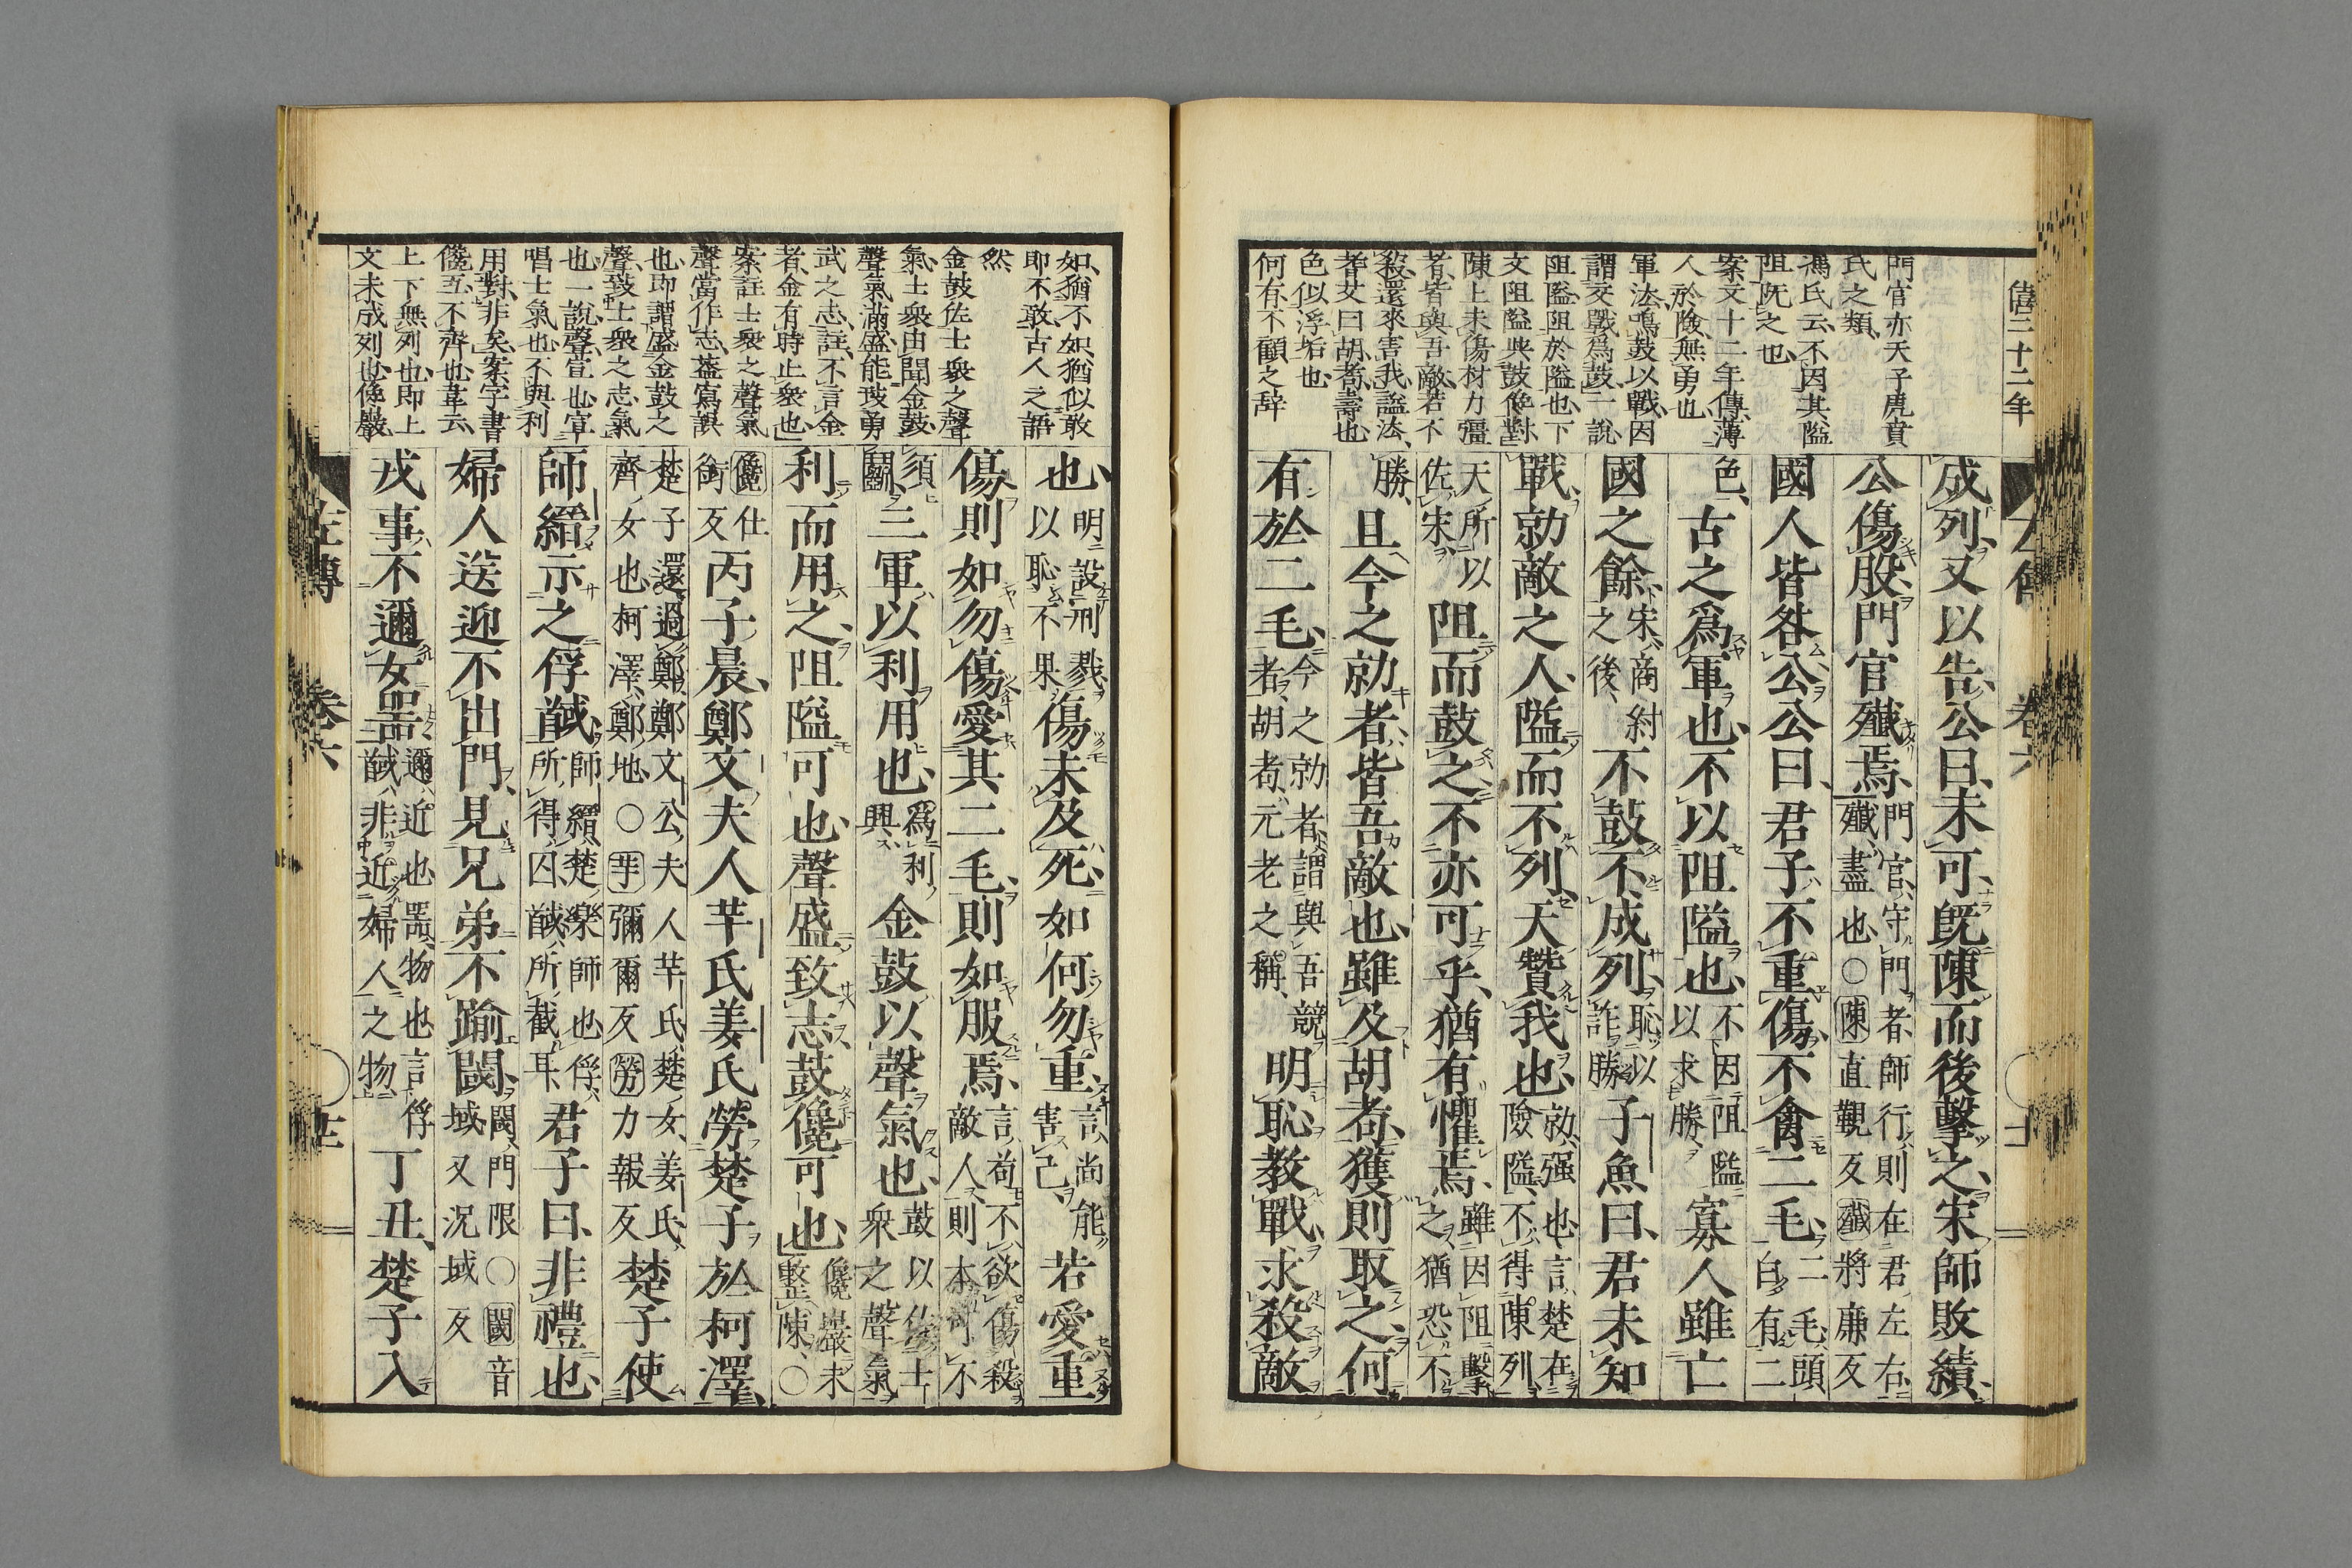 僖二十二年
卷六
門官亦天子虎賁
氏之類
馮氏云不因其隘
阻阨之也
案文十二年傳薄
人於險無勇也
軍法鳴鼓以戰因
謂交戰爲鼓一說
阻隘阻於隘也下
文阻隘與鼓儳對
陳上未傷材力彊
者皆與吾敵若不
殺還來害我諡法
耇艾曰胡耇壽也
色似浮垢也
何有不顧之辞
成列又以告公曰未可旣陳而後擊之宋師敗績
公傷股門官殲焉門官守門者師行則在君左右殲盡也○陳直覲反殲將廉反
國人皆咎公公曰君子不重傷不禽二毛二毛頭白有二
色古之爲軍也不以阻隘也不因阻隘以求勝寡人雖亡
國之餘宋商紂之後不鼓不成列恥以詐勝子魚曰君未知
戰勍敵之人隘而不列天贊我也勍强也言楚在險隘不得陳列
天所以佐宋阻而鼓之不亦可乎猶有懼焉雖因阻擊之猶恐不
勝且今之勍者皆吾敵也雖及胡耇獲則取之何
有於二毛今之勍者謂與吾競者胡耇元老之稱明恥教戰求殺敵
如猶不如猶似敢
即不敢古人之語
然
金鼓佐士衆之聲
氣士衆由聞金鼓
聲氣滿盛能致勇
武之志註不言金
者金有時止衆也
案註士衆之聲氣
聲當作志葢寫誤
也即謂盛金鼓之
聲致士衆之志氣
也一說聲宣也宣
唱士氣也不與利
用對非矣案字書
儳互不齊也韋云
上下無列也即上
文未成列也儳巖
也明設刑戮以恥不果傷未及死如何勿重言尚能害己若愛重
傷則如勿傷愛其二毛則如服焉言苟不欲傷殺敵人則本可不
須鬭三軍以利用也爲利興金鼓以聲氣也鼓以佐士衆之聲氣
利而用之阻隘可也聲盛致志鼓儳可也儳巖未整陳○
儳仕銜反丙子晨鄭文夫人芈氏姜氏勞楚子於柯澤
楚子還過鄭鄭文公夫人芈氏楚女姜氏齊女也柯澤鄭地○芈彌爾反勞力報反楚子使
師縉示之俘馘師縉楚樂師也俘所得囚馘所截耳君子曰非禮也
婦人送迎不出門見兄弟不踰閾閾門限○閾音域又況域反
戎事不邇女器邇近也器物也言俘馘非近婦人之物丁丑楚子入
左傳
卷六